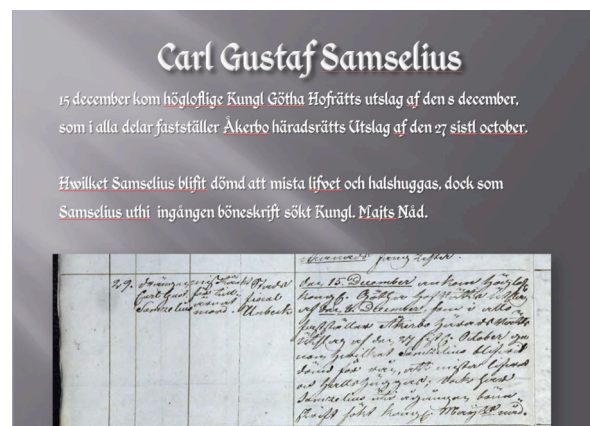 Carl Gustaf Samselius
15 december kom högloflige Kungl Götha Hofrätts utslag af den 8 december,
som i alla delar fastställer Åkerbo häradsrätts Utslag af den 27 sistl october.
Hwilket Samselius blifit dömd att mista lifvet och halshuggas, dock som
Samselius uthi ingången böneskrift sökt Kungl. Majts Nåd.
29.
Carl Gust.
Samzelius
den 15 December ankom
af den 8 December, som i alla
fastställer Åkerbo Härads Rätts
Utslag af den 27 October
hwilket Samzelius blifvit
att mista lifvet
och halshuggas, dock
Samzelius uti ingången böne
skrift sökt Kongl. Maj:ts nåd.